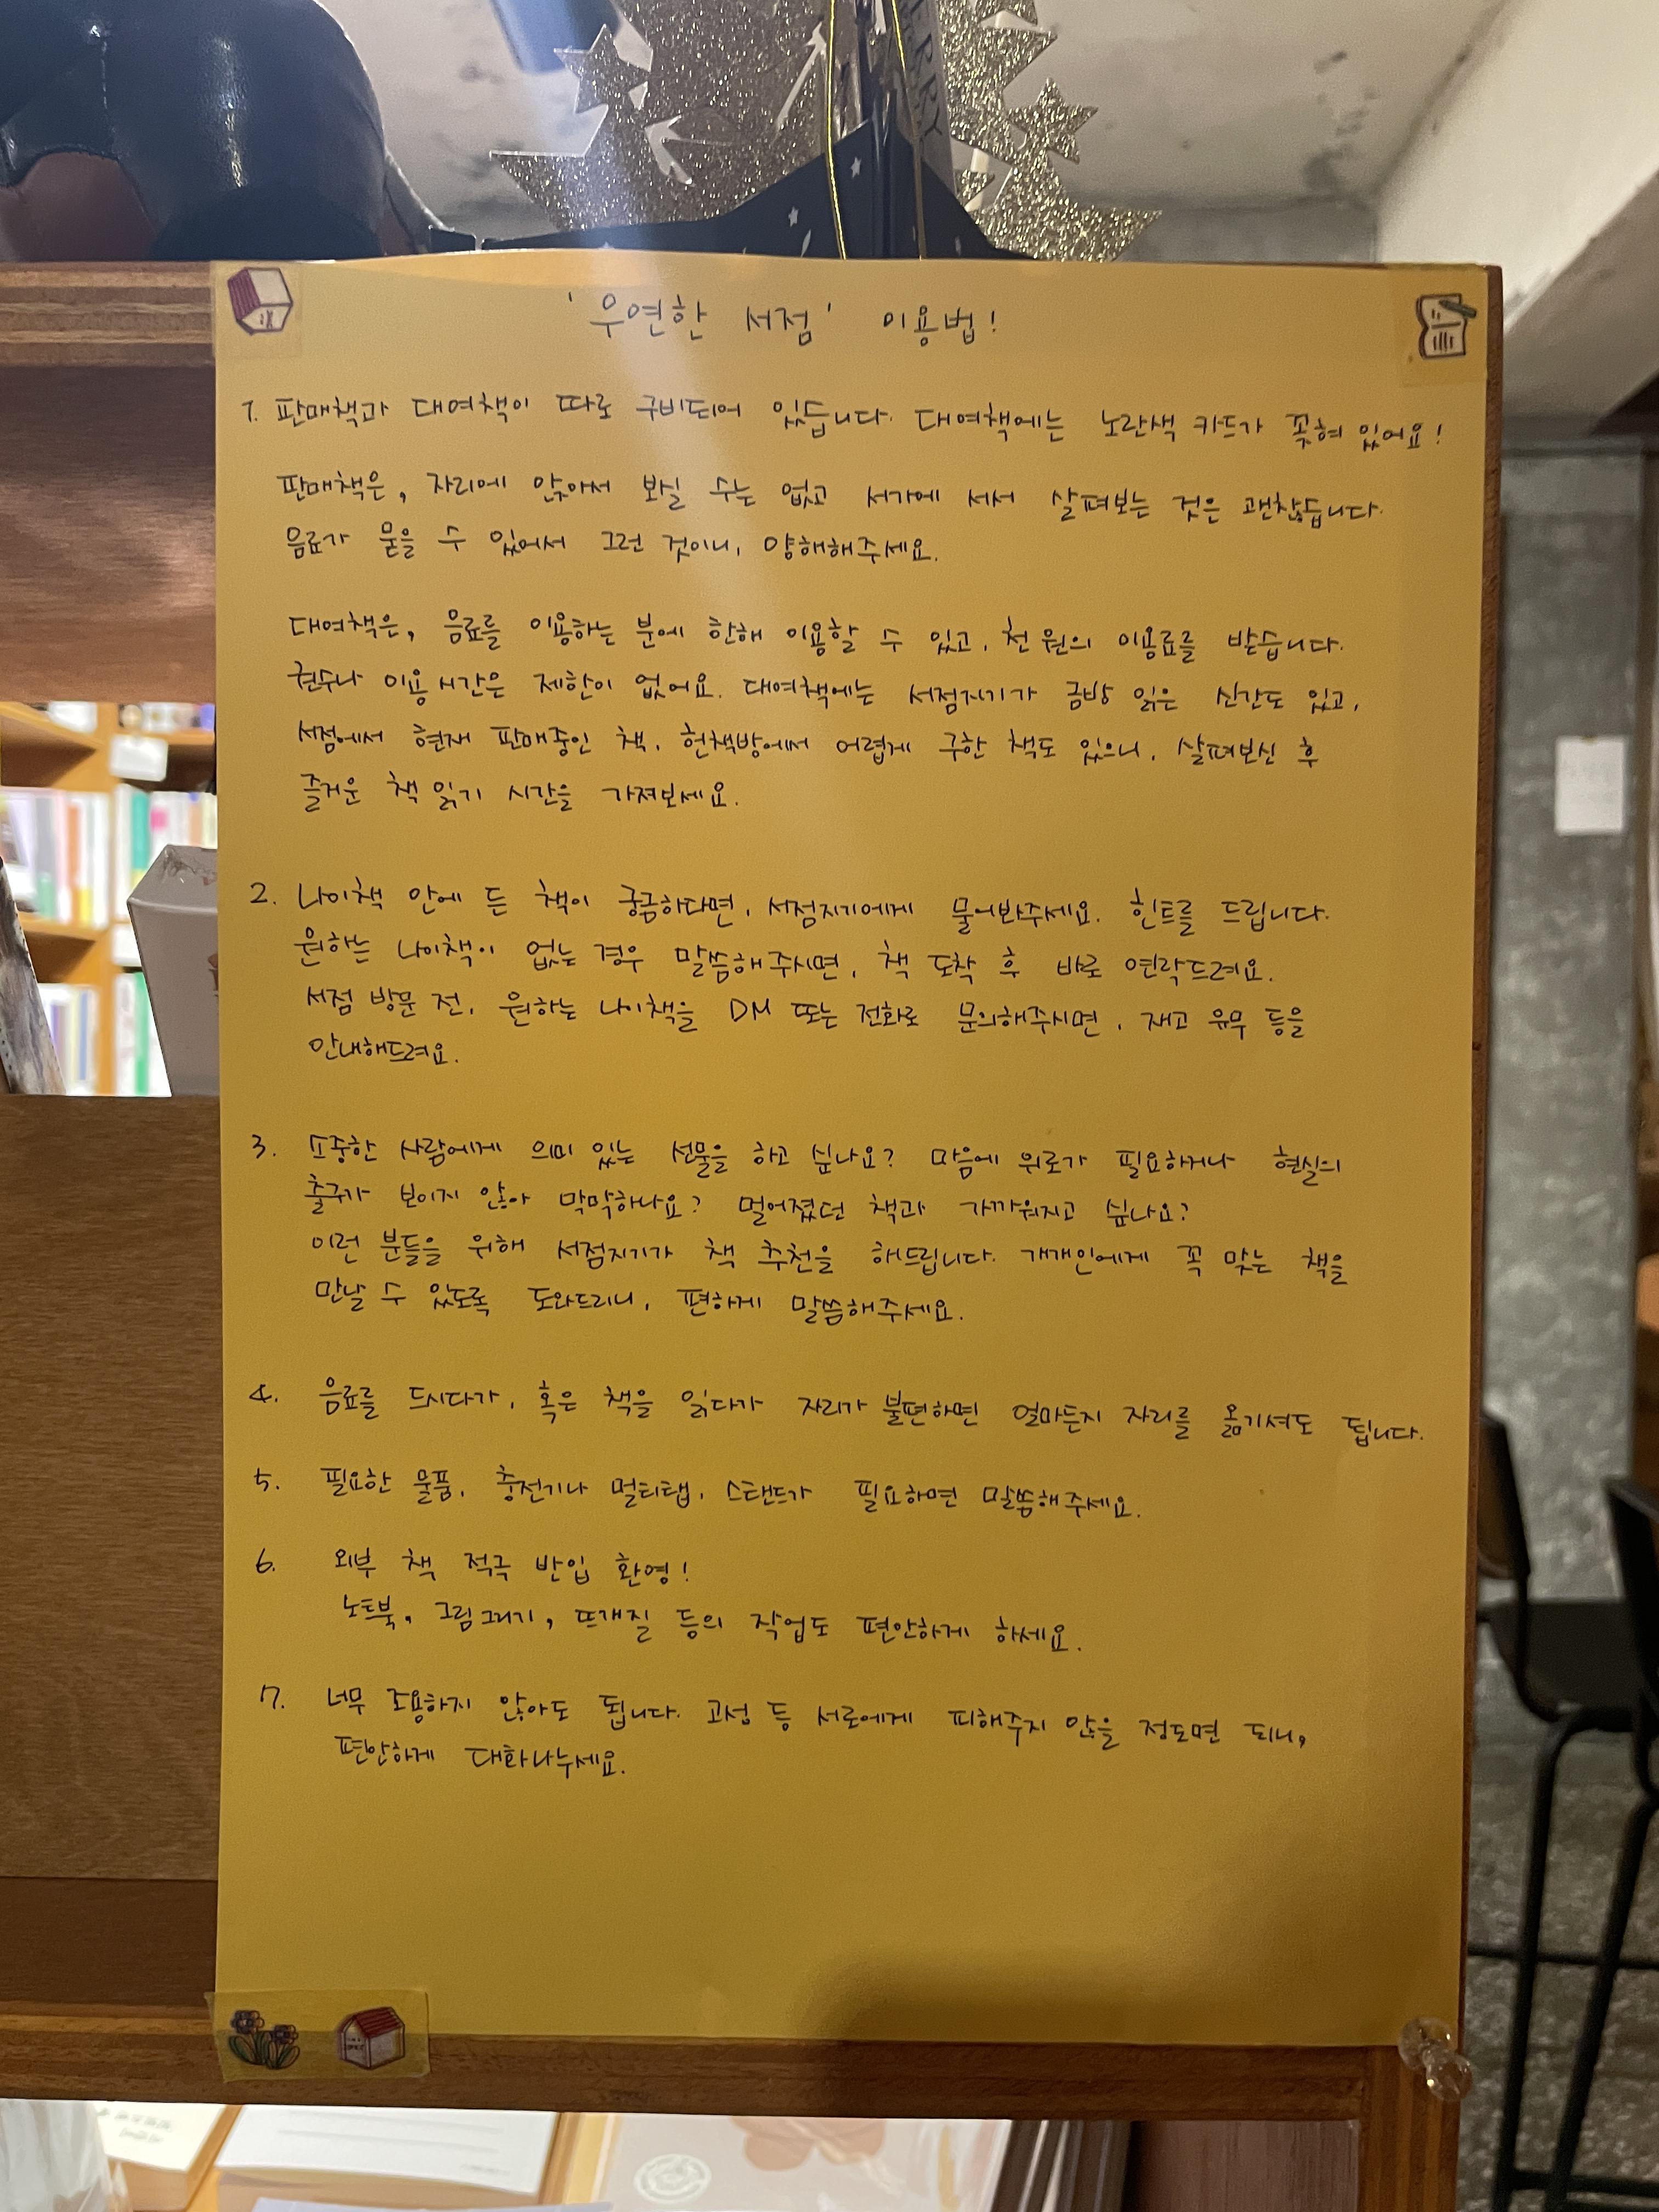 ERRY
'우연한 서점' 이용법!
1. 판매책과 대여책이 따로 구비되어 있습니다. 대여책에는 노란색 카드가 꽂혀 있어요!
판매책은, 자리에 앉아서 보실 수는 없고 서가에 서서 살펴보는 것은 괜찮습니다.
음료가 묻을 수 있어서 그런 것이니, 양해해주세요.
대여책은, 음료를 이용하는 분에 한해 이용할 수 있고, 천 원의 이용료를 받습니다.
권수나 이용 시간은 제한이 없어요. 대여책에는 서점지기가 금방 읽은 신간도 있고,
서점에서 현재 판매중인 책, 헌책방에서 어렵게 구한 책도 있으니, 살펴보신 후
즐거운 책 읽기 시간을 가져보세요.
2. 나이책 안에 든 책이 궁금하다면, 서점지기에게 물어봐주세요. 힌트를 드립니다.
원하는 나이책이 없는 경우 말씀해주시면, 책 도착 후 바로 연락드려요.
서점 방문 전, 원하는 나이책을 DM 또는 전화로 문의해주시면, 재고 유무 등을
안내해드려요.
3. 소중한 사람에게 의미 있는 선물을 하고 싶나요? 마음에 위로가 필요하거나 현실의
출구가 보이지 않아 막막하나요? 멀어졌던 책과 가까워지고 싶나요?
이런 분들을 위해 서점지기가 책 추천을 해드립니다. 개개인에게 꼭 맞는 책을
만날 수 있도록 도와드리니, 편하게 말씀해주세요.
4. 음료를 드시다가, 혹은 책을 읽다가 자리가 불편하면 얼마든지 자리를 옮기셔도 됩니다.
5. 필요한 물품, 충전기나 멀티탭, 스탠드가 필요하면 말씀해주세요.
6. 외부 책 적극 반입 환영!
노트북, 그림그리기, 뜨개질 등의 작업도 편안하게 하세요.
7. 너무 조용하지 않아도 됩니다. 고성 등 서로에게 피해주지 않을 정도면 되니,
편안하게 대화나누세요.